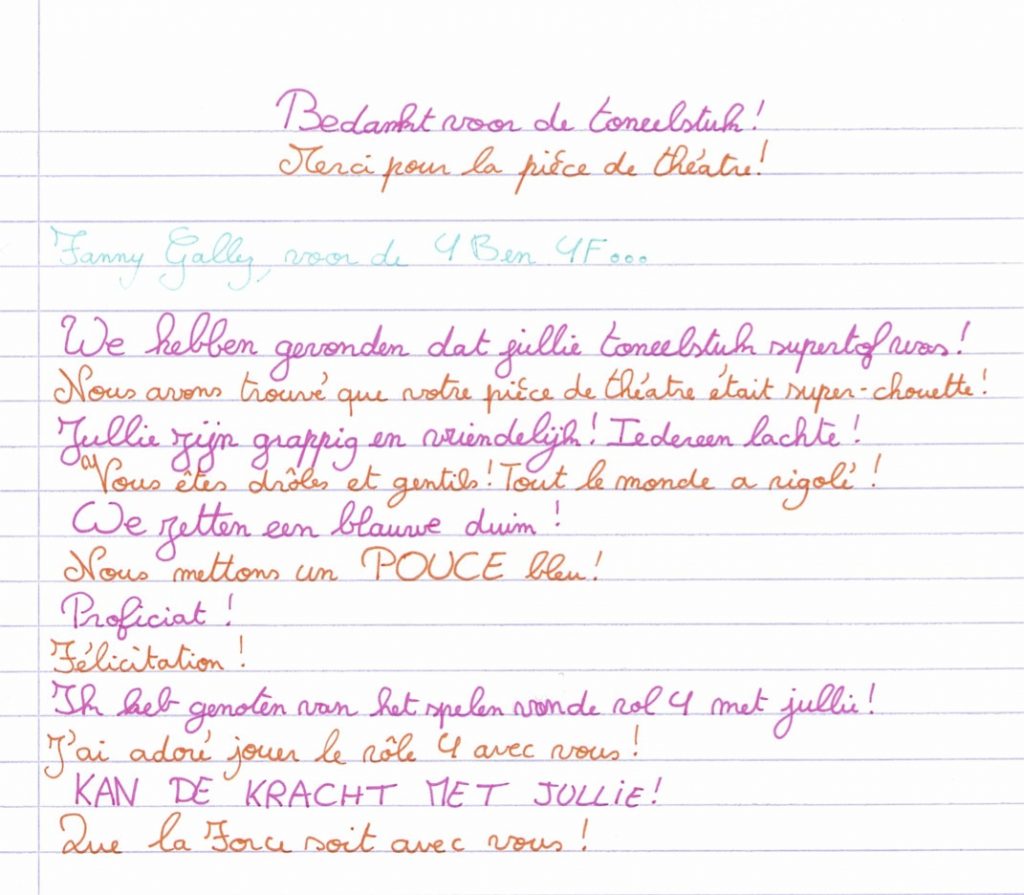 Bedankt voor de toneelstuk!
Merci pour la piéce de théatre!
Fanny Gally, voor de 4 B en 4F...
We hebben gevonden dat jullie toneelstuk supertof was!
Nous avons trouvé que votre piéce de théatre était super-chouette!
Jullie zijn grappig en vriendelijk! Iedereen lachte!
Vous êtes drôles et gentils! Tout le monde a rigolé!
We zetten een blauwe duim!
Nous mettons un POUCE bleu!
Proficiat!
Félicitation!
Ik heb genoten van het spelen van de rol 4 met jullie!
J'ai adoré jouer le rôle 4 avec vous!
KAN DE KRACHT MET JULLIE!
Que la Force soit avec vous!